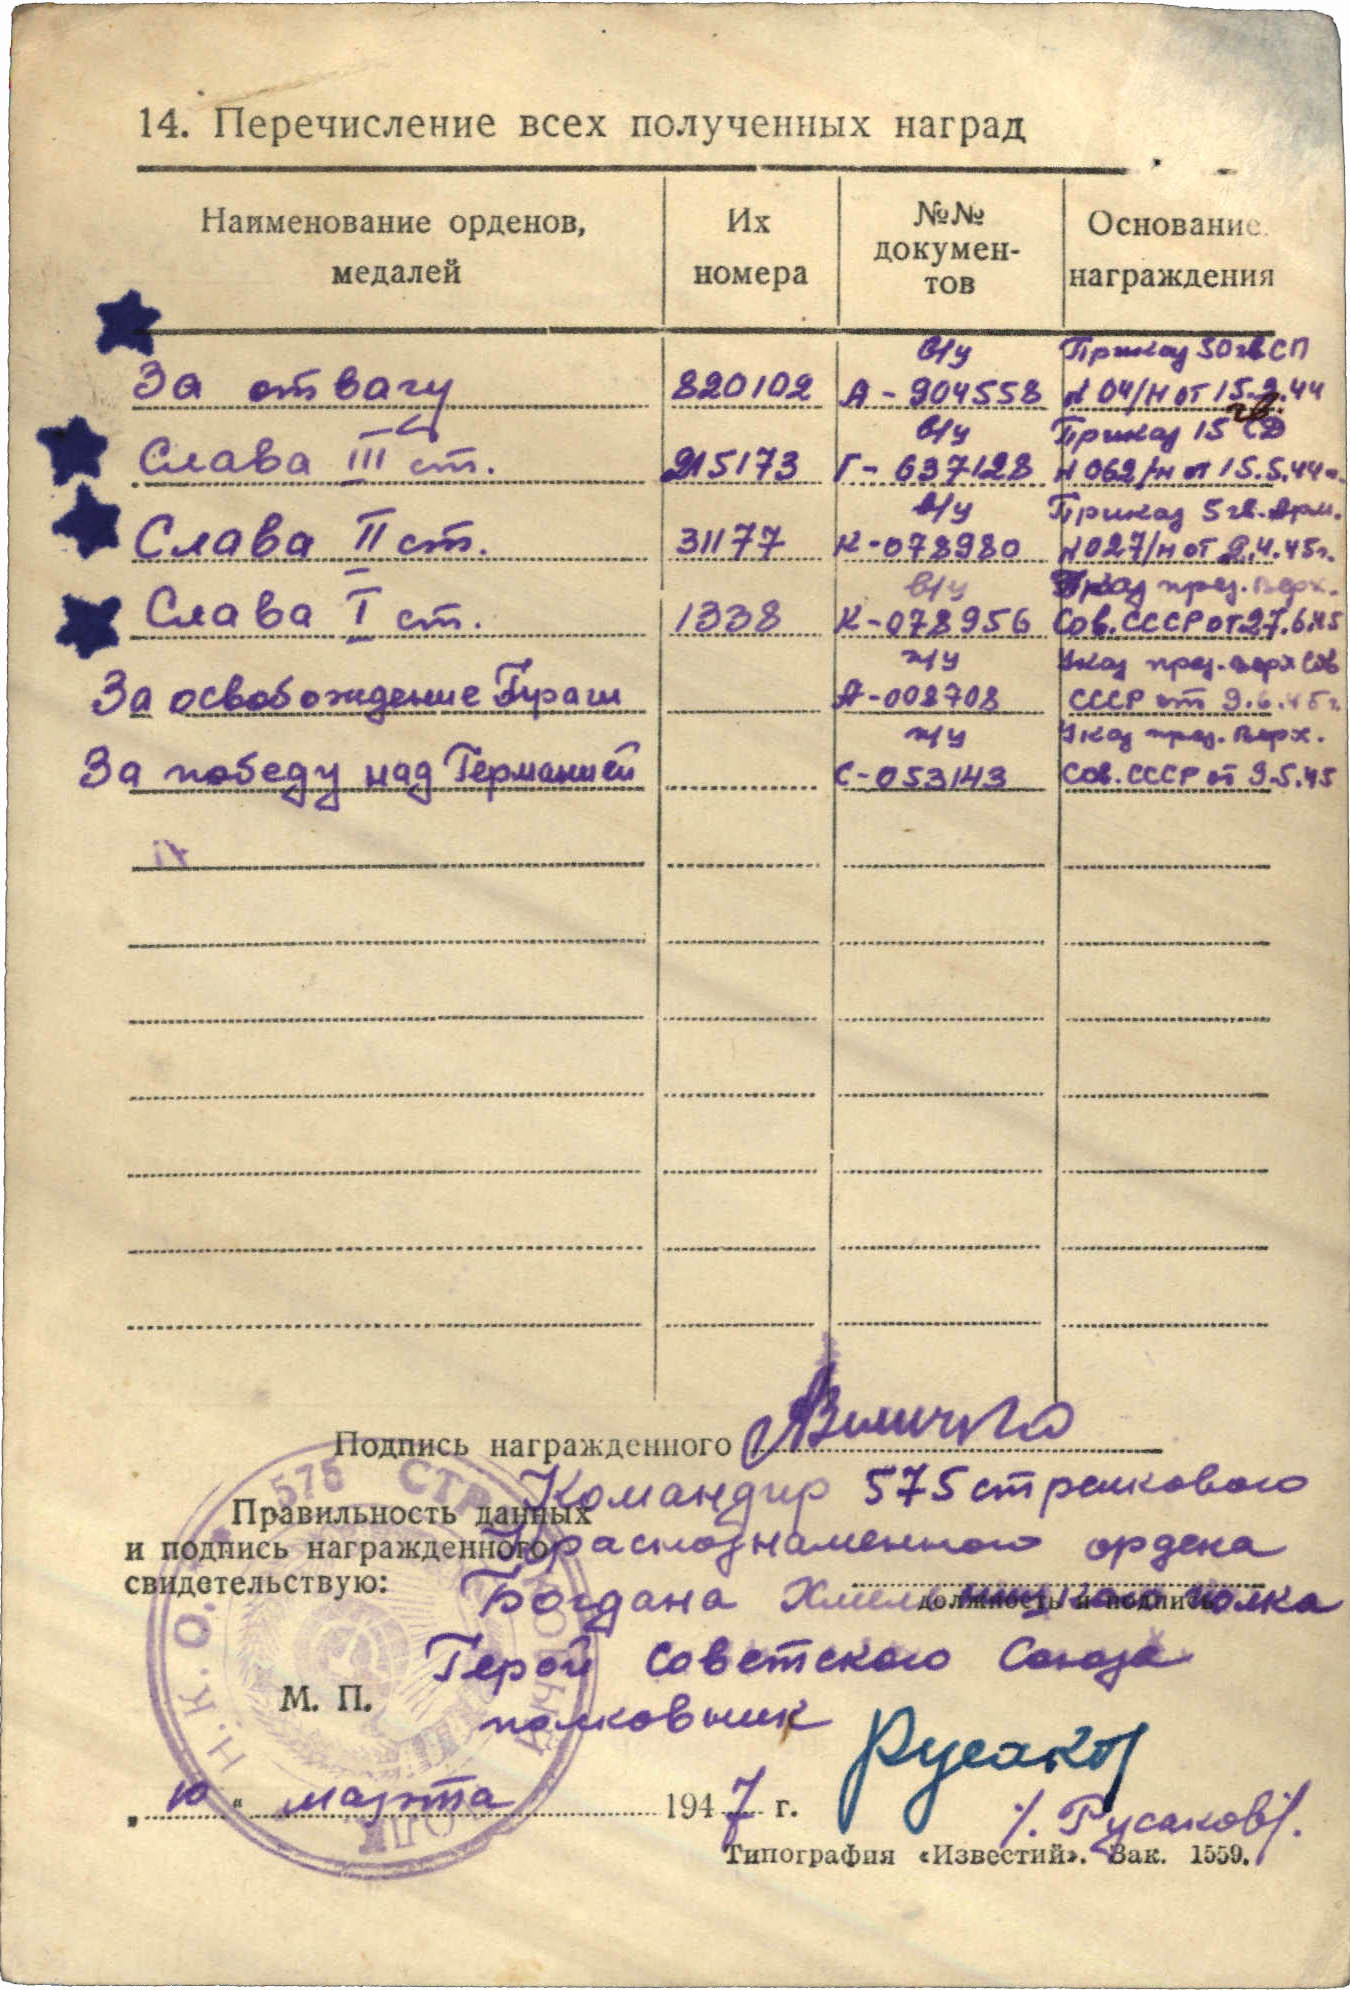 14. Перечисление всех полученных наград
Наименование орденов, медалей
Их номера
№№ докумен-тов
Основание награждения
в/у Приказ 50 гв СП
За отвагу 820102 А-904558 N 04/н от 15.2.44
в/у Приказ 15 гв. СД
Слава III ст. 215173 Г-637128 N 062/н от 15.5.44г.
в/у Приказ 5 гв. Арм.
Слава II ст. 31177 К-078980 N 027/н от 9.4.45г.
в/у Указ през. Верх.
Слава I ст. 1338 К-078956 Сов. СССР от 27.6.45
п/у Указ през. Верх Сов
За освобождение Праги А-008708 СССР от 9.6.45г.
п/у Указ през. Верх.
За победу над Германией С-053143 Сов. СССР от 9.5.45
Подпись награжденного АВеличко
Правильность данных
и подпись награжденного
свидетельствую:
Командир 575 стрелкового
Краснознаменного ордена
Богдана Хмельницкого полка
должность и подпись
Герой Советского Союза
полковник Русаков
М. П.
„10“ марта 1947 г.
/. Русаков/.
Типография «Известий». Зак. 1559.
Н.К.О. 575 СТРЕЛКОВЫЙ ПОЛК